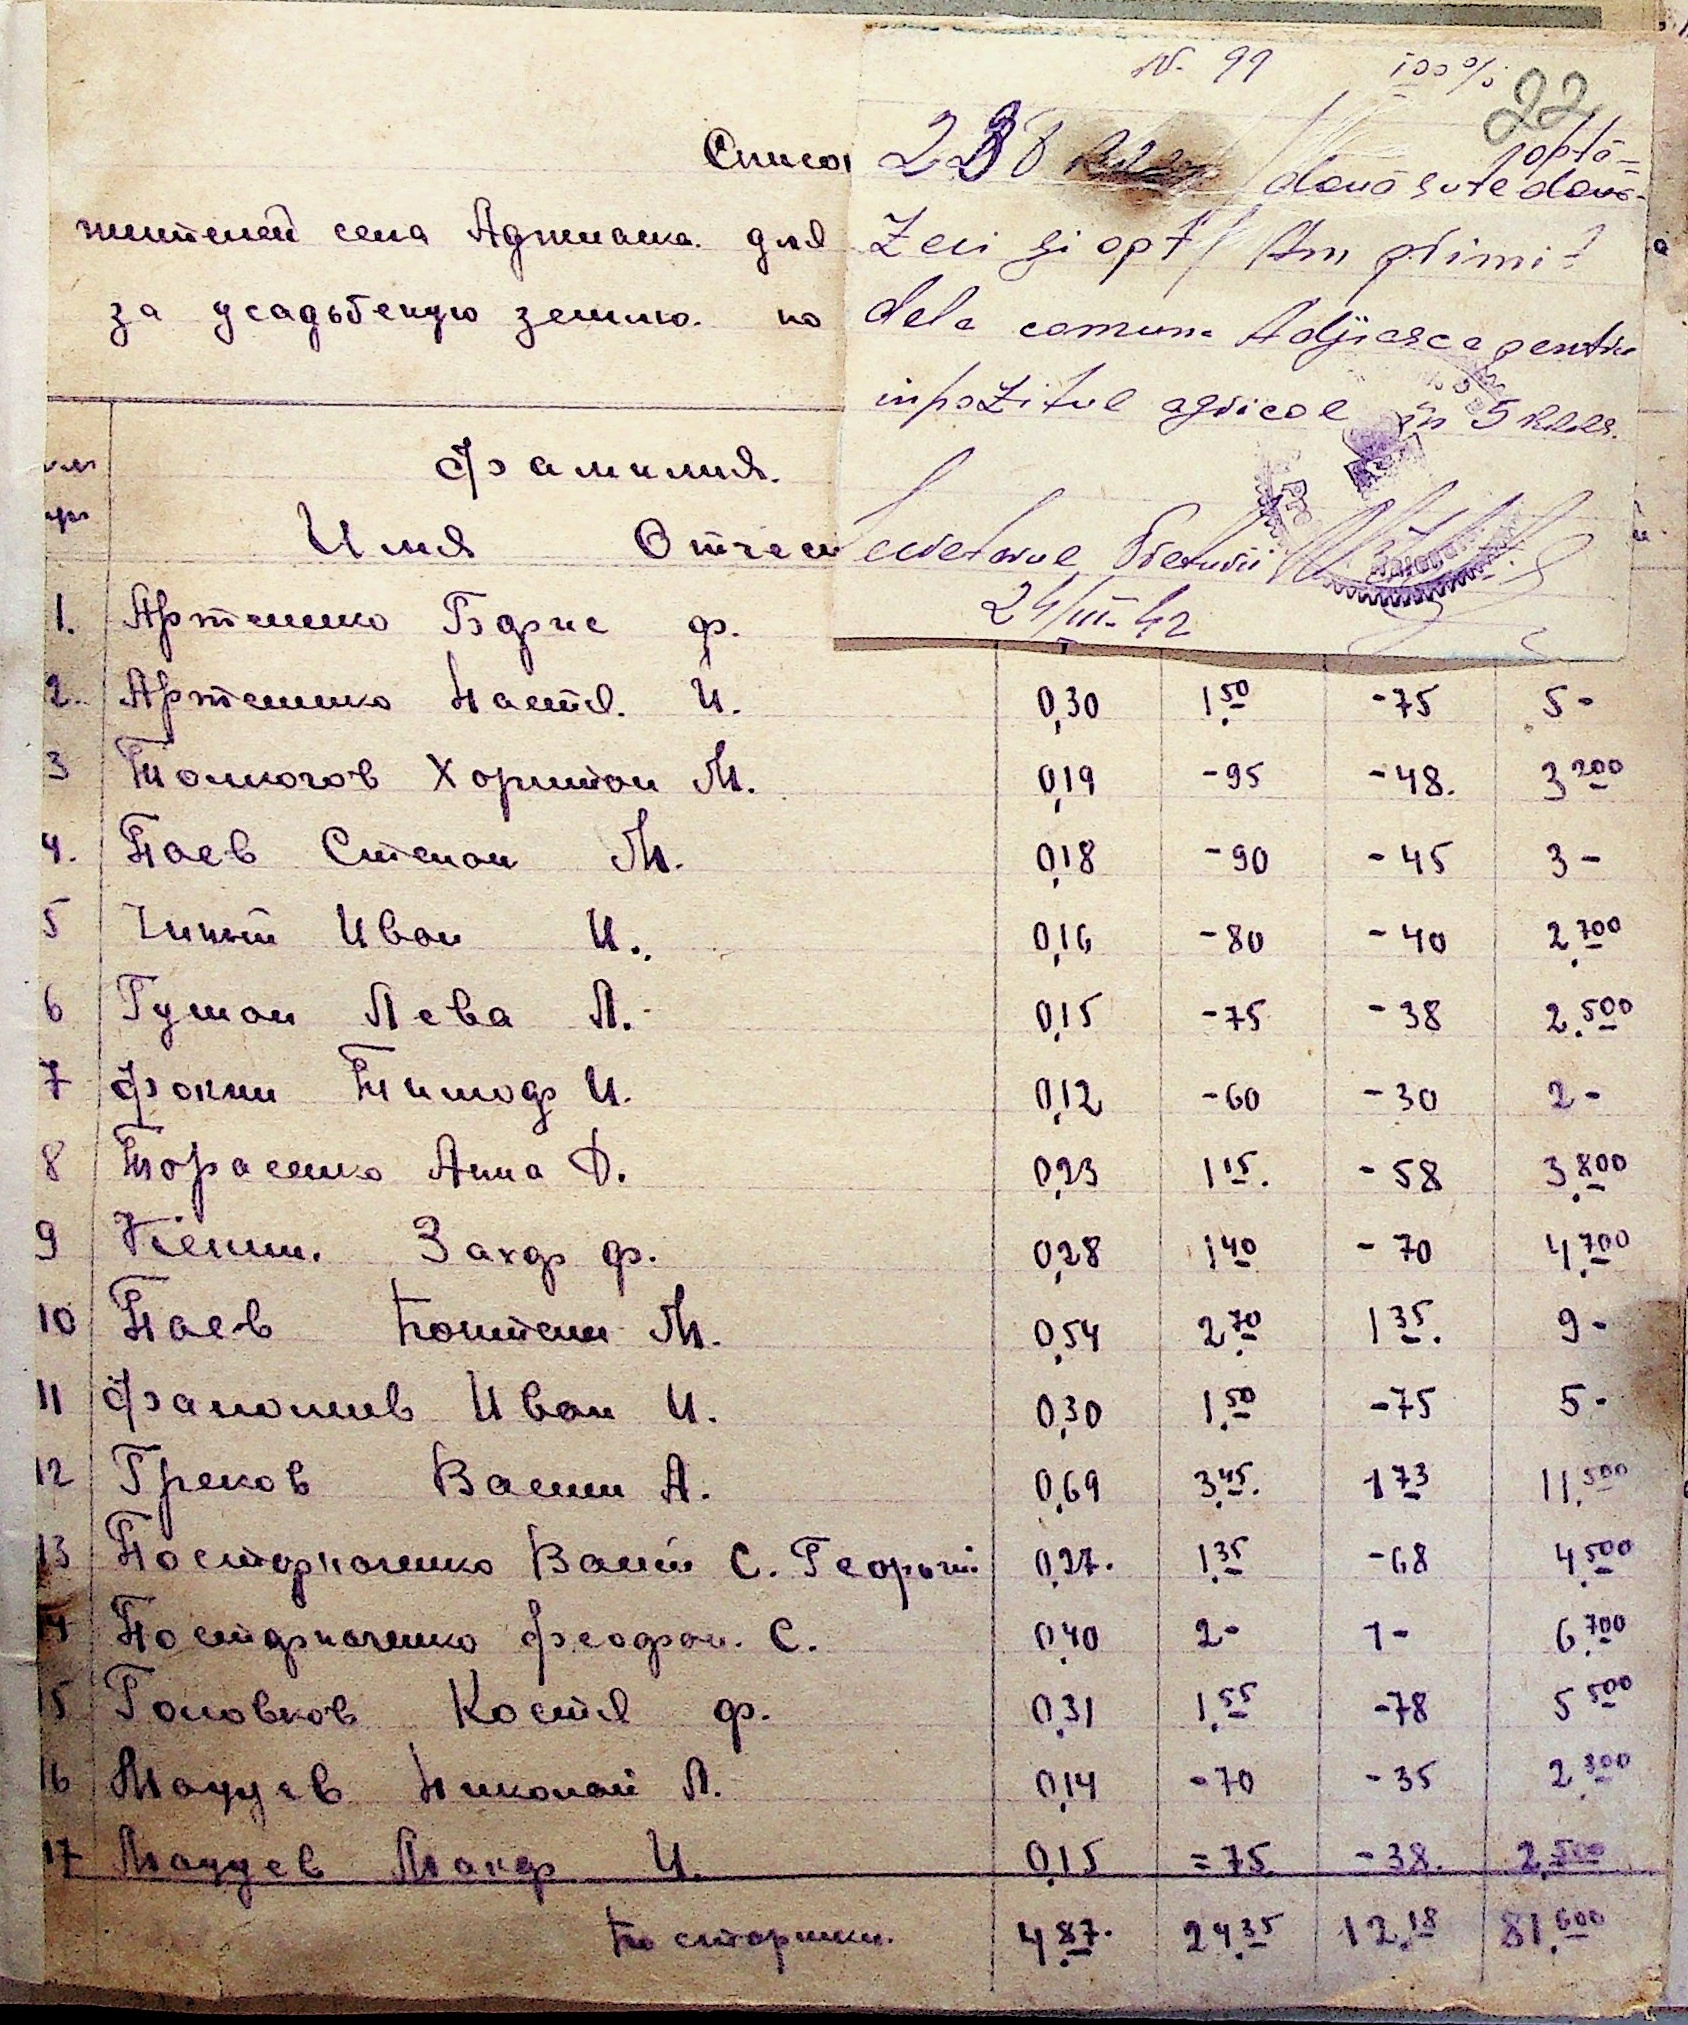 N. 99 100% 22
228 /două sute două-
optă-
zeci și opt/ Am primit
dela comuna Adjiasca pentru
inpozitul agricol în 5
Secretarul Preturii
24/III-42
Список
жителей села Аджиаска. для
за усадьбеную землю. по
Фамилия.
Имя Отчес
1. Артеменко Борис Ф.
2. Артеменко Настя. И. 0,30 1.50 -75 5-
3 Толмогов Харитон М. 0,19 -95 -48. 3 200
4. Паев Степан М. 0,18 -90 -45 3-
5 Иван И. 0,16 -80 -40 2.700
6 Гуман Лева Л. 0,15 -75 -38 2.500
7 Фокин Тимоф И. 0,12 -60 -30 2-
8 Тарасенко Анна Д. 0,23 1 15. -58 3.800
9 Захар Ф. 0,28 1 40 -70 4.700
10 Паев М. 0,54 2.70 1 35. 9-
11 Иван И. 0,30 1.50 -75 5-
12 Греков Васили А. 0,69 3.45. 1 73 11.500
13 Постарначенко С. Георгий 0,27. 1.35 -68 4.500
14 Постарначенко Феофан. С. 0,40 2- 1- 6.700
15 Головков Костя Ф. 0,31 1.55 -78 5 500
16 Мацуев Николай Л. 0,14 -70 -35 2.300
17 Мацуев Макар И. 0,15 =75 -38. 2.500
По старници. 4.87. 24.35 12.18 81.600